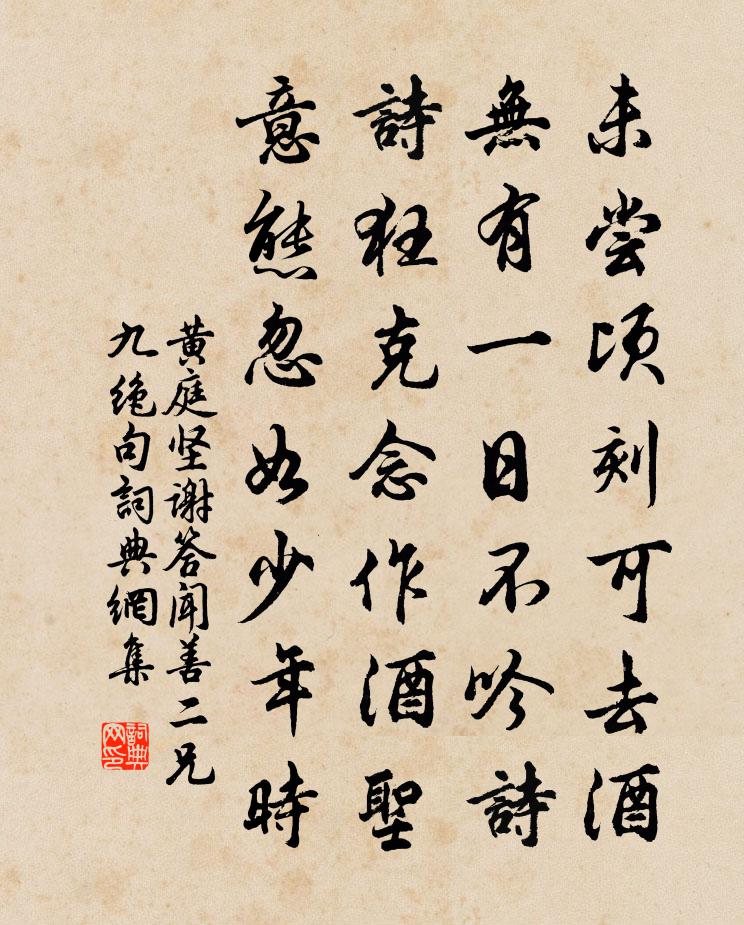 未尝頃刻可去酒
無有一日不吟詩
詩狂克念作酒聖
意態忽如少年時
黄庭坚谢答闻善二兄
九绝句詞典網集
詞典
网印